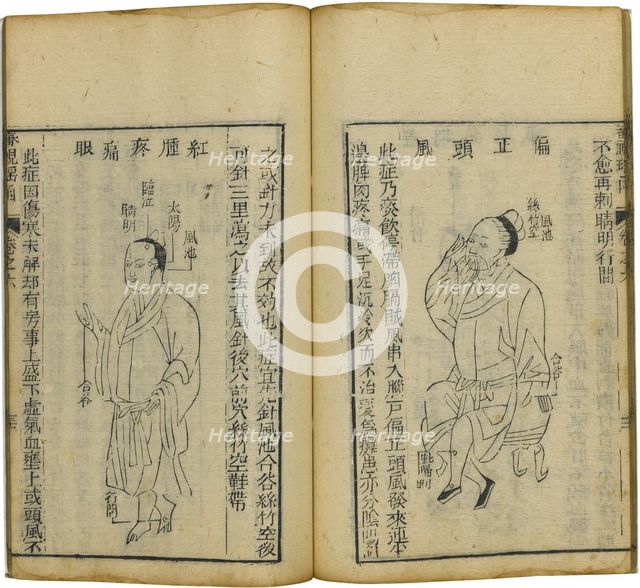 不愈再刺睛明行間
偏正頭風
風池
絲竹空
合谷
此症乃痰飲停滯胸膈賊風串入腦戶偏正頭風發來連半
邊 肉疼痛或手足沉冷久而不治變為癱患亦分陰
之或針力未到故不效也此症宜先針風池合谷絲竹空後
可針三里瀉之以去其風針後穴前穴絲竹空鞋帶
紅腫疼痛眼
風池
太陽
臨泣
睛明
合谷
行間
此症因傷寒未解却有房事上盛下虛氣血壅上或頭風不
審視瑤函 卷之六
Heritage Images
Heritage Images
Heritage Images
Heritage Images